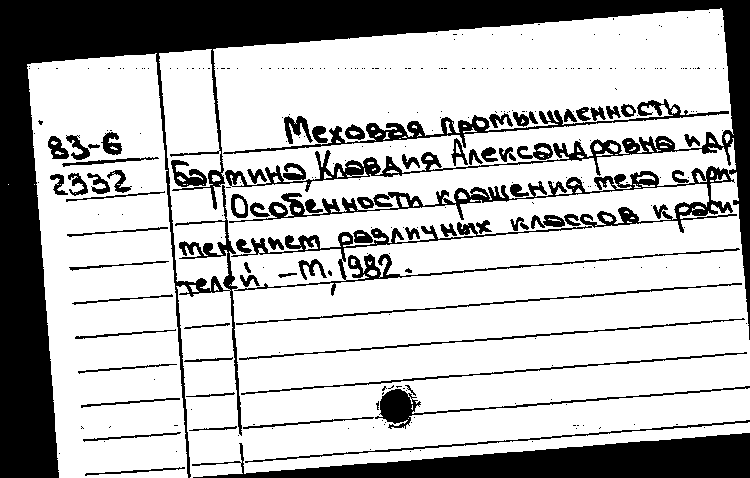 Меховая промышленность.
83-6
2332
Бартина, Клавдия Александровна и др
Особенности крашения меха с при-
менением различных классов краси-
телей. - М., 1982.